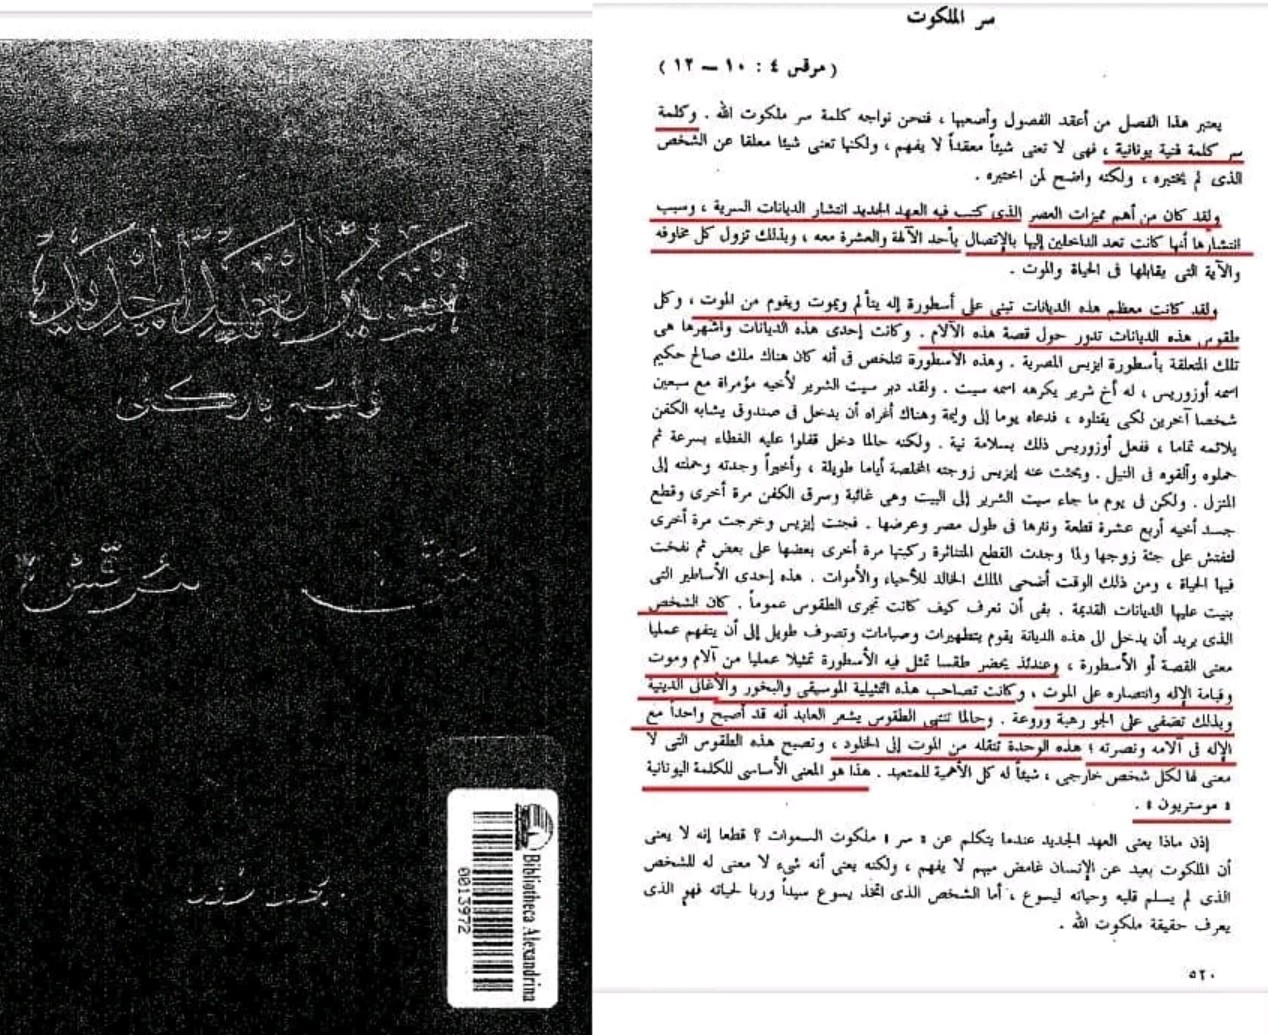 تفسير العهد الجديد
وليم باركلى
متى
مرقس
Bibliotheca Alexandrina
0013972
سر الملكوت
( مرقس ٤ : ١٠ – ١٢ )
يعتبر هذا الفصل من أعقد الفصول وأصعبها ، فنحن نواجه كلمة سر ملكوت الله . وكلمة
سر كلمة فنية يونانية ، فهى لا تعنى شيئاً معقداً لا يفهم ، ولكنها تعنى شيئا معلقا عن الشخص
الذى لم يختبره ، ولكنه واضح لمن اختبره .
ولقد كان من أهم مميزات العصر الذى كتب فيه العهد الجديد انتشار الديانات السرية ، وسبب
انتشارها أنها كانت تعد الداخلين إليها بالإتصال بأحد الآلهة والعشرة معه ، وبذلك تزول كل مخاوفه
والآية التى يقابلها فى الحياة والموت .
ولقد كانت معظم هذه الديانات تبنى على أسطورة إله يتألم ويموت ويقوم من الموت ، وكل
طقوس هذه الديانات تدور حول قصة هذه الآلام . وكانت إحدى هذه الديانات واشهرها هى
تلك المتعلقة بأسطورة ايزيس المصرية . وهذه الأسطورة تتلخص فى أنه كان هناك ملك صالح حكيم
اسمه أوزوريس ، له أخ شرير يكرهه اسمه سيت . ولقد دبر سيت الشرير لأخيه مؤمراة مع سبعين
شخصا آخرين لكى يقتلوه ، فدعاه يوما إلى وليمة وهناك أغراه أن يدخل فى صندوق يشابه الكفن
يلائمه تماما ، ففعل أوزوريس ذلك بسلامة نية . ولكنه حالما دخل قفلوا عليه الغطاء بسرعة ثم
حملوه وألقوه فى النيل . وبحثت عنه إيزيس زوجته المخلصة أياما طويلة ، وأخيراً وجدته وحملته إلى
المنزل . ولكن فى يوم ما جاء سيت الشرير إلى البيت وهى غائبة وسرق الكفن مرة أخرى وقطع
جسد أخيه أربع عشرة قطعة ونارها فى طول مصر وعرضها . فجنت إيزيس وخرجت مرة أخرى
لتفتش على جثة زوجها ولما وجدت القطع المتناثرة ركبتها مرة أخرى بعضها على بعض ثم نفخت
فيها الحياة ، ومن ذلك الوقت أضحى الملك الخالد للأحياء والأموات . هذه إحدى الأساطير التى
بنيت عليها الديانات القديمة . بقى أن نعرف كيف كانت تجرى الطقوس عموماً . كان الشخص
الذى يريد أن يدخل الى هذه الديانة يقوم بتطهيرات وصيامات وتصرف طويل إلى أن يتفهم عمليا
معنى القصة أو الأسطورة ، وعندئذ يحضر طقسا تمثل فيه الأسطورة تمثيلا عمليا من آلام وموت
وقيامة الإله وانتصاره على الموت ، وكانت تصاحب هذه التمثيلية الموسيقى والبخور والأغانى الدينية
وبذلك تضفى على الجو رهبة وروعة . وحالما تنتهى الطقوس يشعر العابد أنه قد أصبح واحداً مع
الإله فى آلامه ونصرته ؛ هذه الوحدة تنقله من الموت إلى الخلود ، وتصبح هذه الطقوس التى لا
معنى لها لكل شخص خارجى ، شيئاً له كل الأهمية للمتعبد . هذا هو المعنى الأساسى للكلمة اليونانية
« موستريون » .
إذن ماذا يعنى العهد الجديد عندما يتكلم عن « سر » ملكوت السموات ؟ قطعا إنه لا يعنى
أن الملكوت بعيد عن الإنسان غامض مبهم لا يفهم ، ولكنه يعنى أنه شىء لا معنى له للشخص
الذى لم يسلم قلبه وحياته ليسوع ، أما الشخص الذى اتخذ يسوع سيداً وربا لحياته فهو الذى
يعرف حقيقة ملكوت الله .
٥٢٠